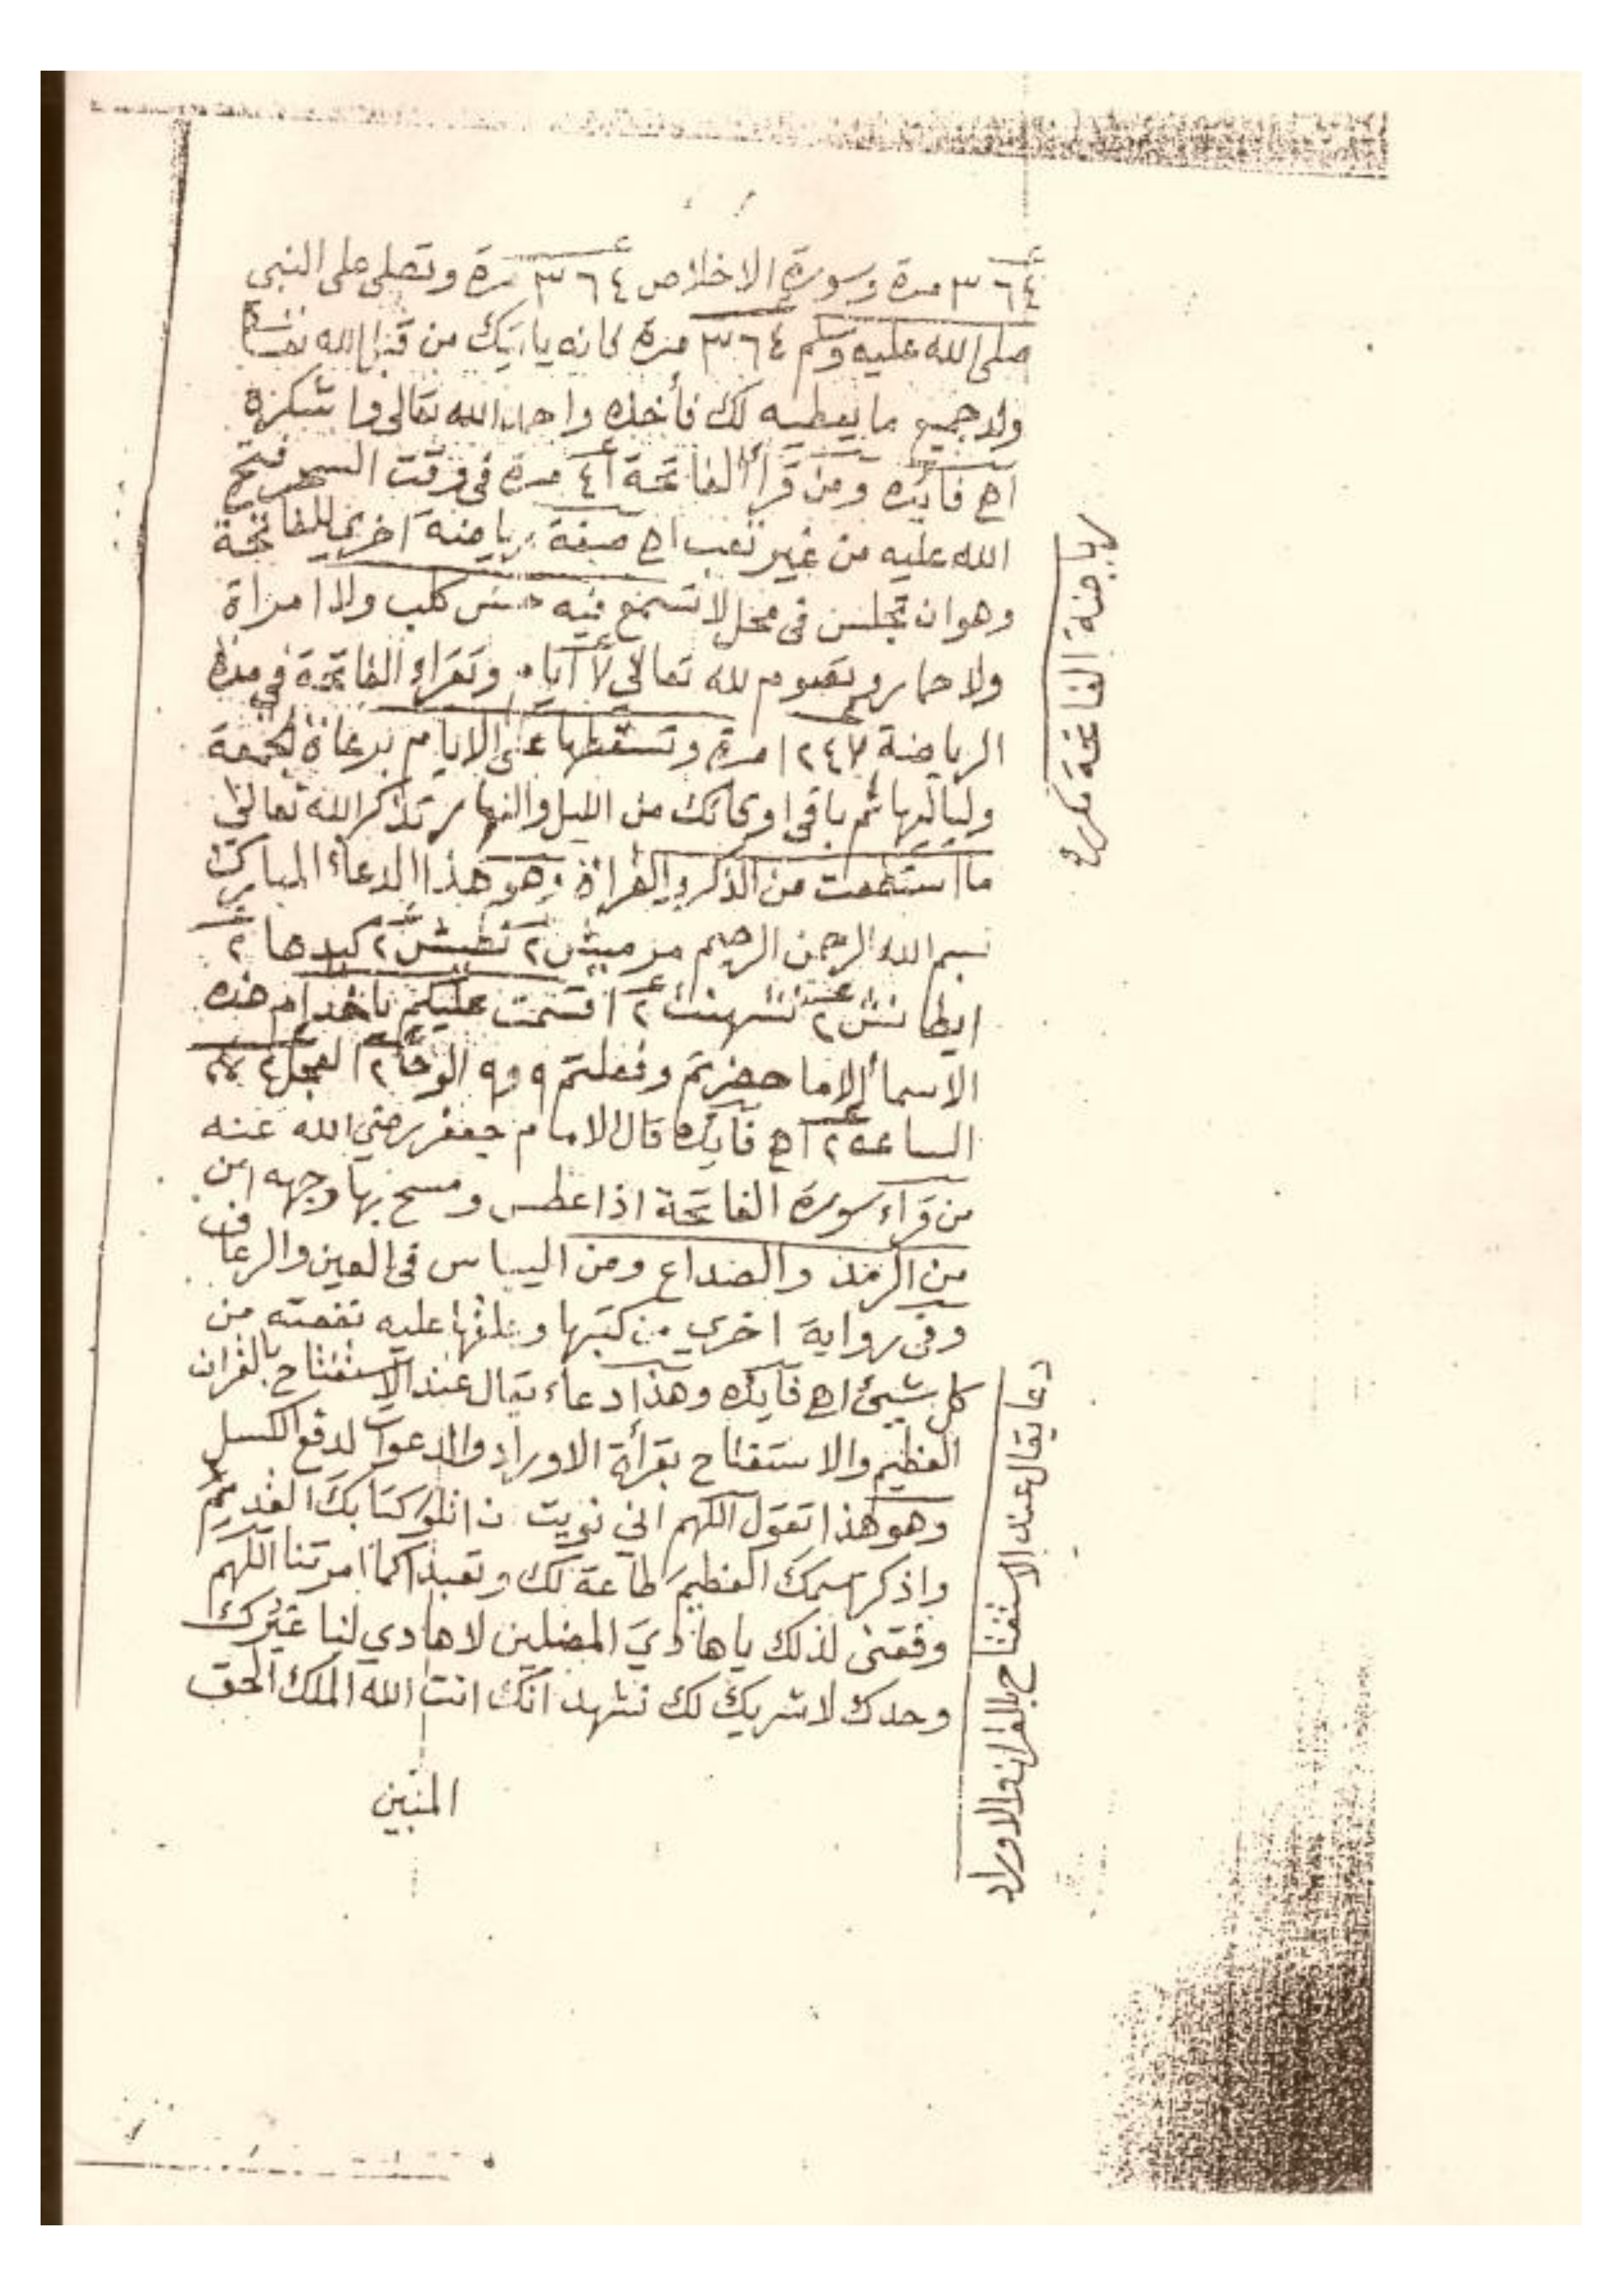 ٣٦٤ مرة وسورة الاخلاص ٣٦٤ مرة وتصلى على النبى
صلى الله عليه وسلم ٣٦٤ مرة من قبل الله
جميع ما يعطيه لك فأخذه واحمد الله تعالى
اھ فائده ومن قرأ الفاتحة ٤١ مرة فى وقت السحر فتح
الله عليه من غير تعب اھ صفة رياضة اخرى للفاتحة
وهو ان تجلس فى محل لا تسمع فيه حس كلب ولا امراة
ولا حمار وتصوم لله تعالي ٧ أيام وتقراء الفاتحة في مدة
الرياضة ١٢٤٧ مرة وتسقطها على الايام
ولياليها ثم باقى اوقاتك من الليل والنهار تذكر الله تعالى
ما استطعت من الذكر والقراة وهو هذا الدعاء المبارك
بسم الله الرحمن الرحيم ٢ ٢ كيدها ٢
٢ ٢ اقسمت عليكم ياخدام هذه
الاسما إلاما حضرتم وفعلتم الوحا ٢ العجل ٢
الساعه ٢ اھ فائده قال الامام جعفر رضي الله عنه
من قراء سورة الفاتحة اذا عطس ومسح بها وجهه امن
من الرمد والصداع ومن البياس فى العين والرعاف
وفى رواية اخري من كتبها وعلقها عليه نفعته من
كل شيئ اھ فايده وهذا دعاء يقال عند الاستفتاح بالقران
العظيم والاستفتاح بقرأة الاوراد والدعوات لدفع الكسل
وهو هذا تقول اللهم اني نويت ان اتلو كتابك القديم
واذكر اسمك العظيم طاعة لك وتعبدا كما امرتنا اللهم
وفقنى لذلك يا هادي المضلين لا هادي لنا غيرك
وحدك لا شريك لك نشهد انك انت الله الملك الحق
المبين
رياضة الفاتحة
دعا يقال عند الاستفتاح بالقران والاوراد